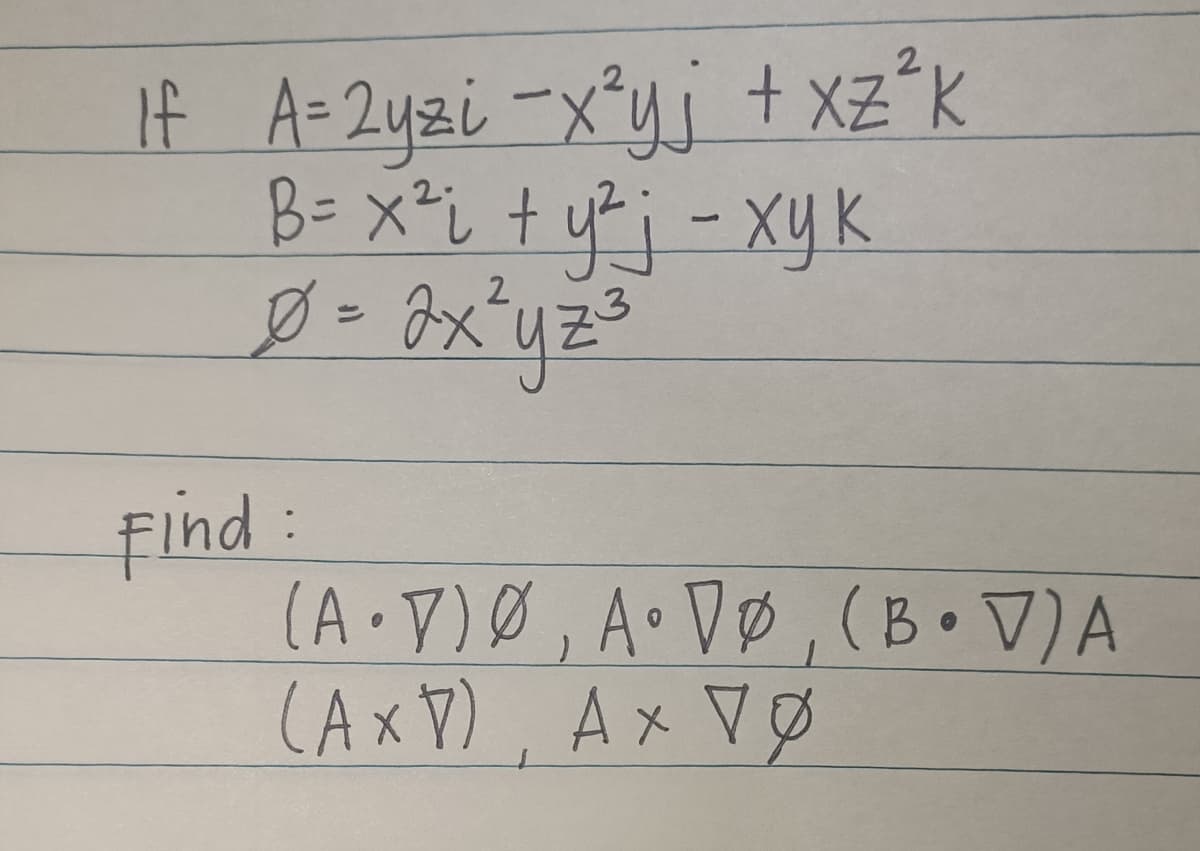 If A=2yzi -x²yj + xz²k
B= x²i + y²j - xyk
Ø = 2x²yz³
Find :
(A•∇)Ø, A•∇Ø, (B•∇)A
(A×∇), A×∇Ø